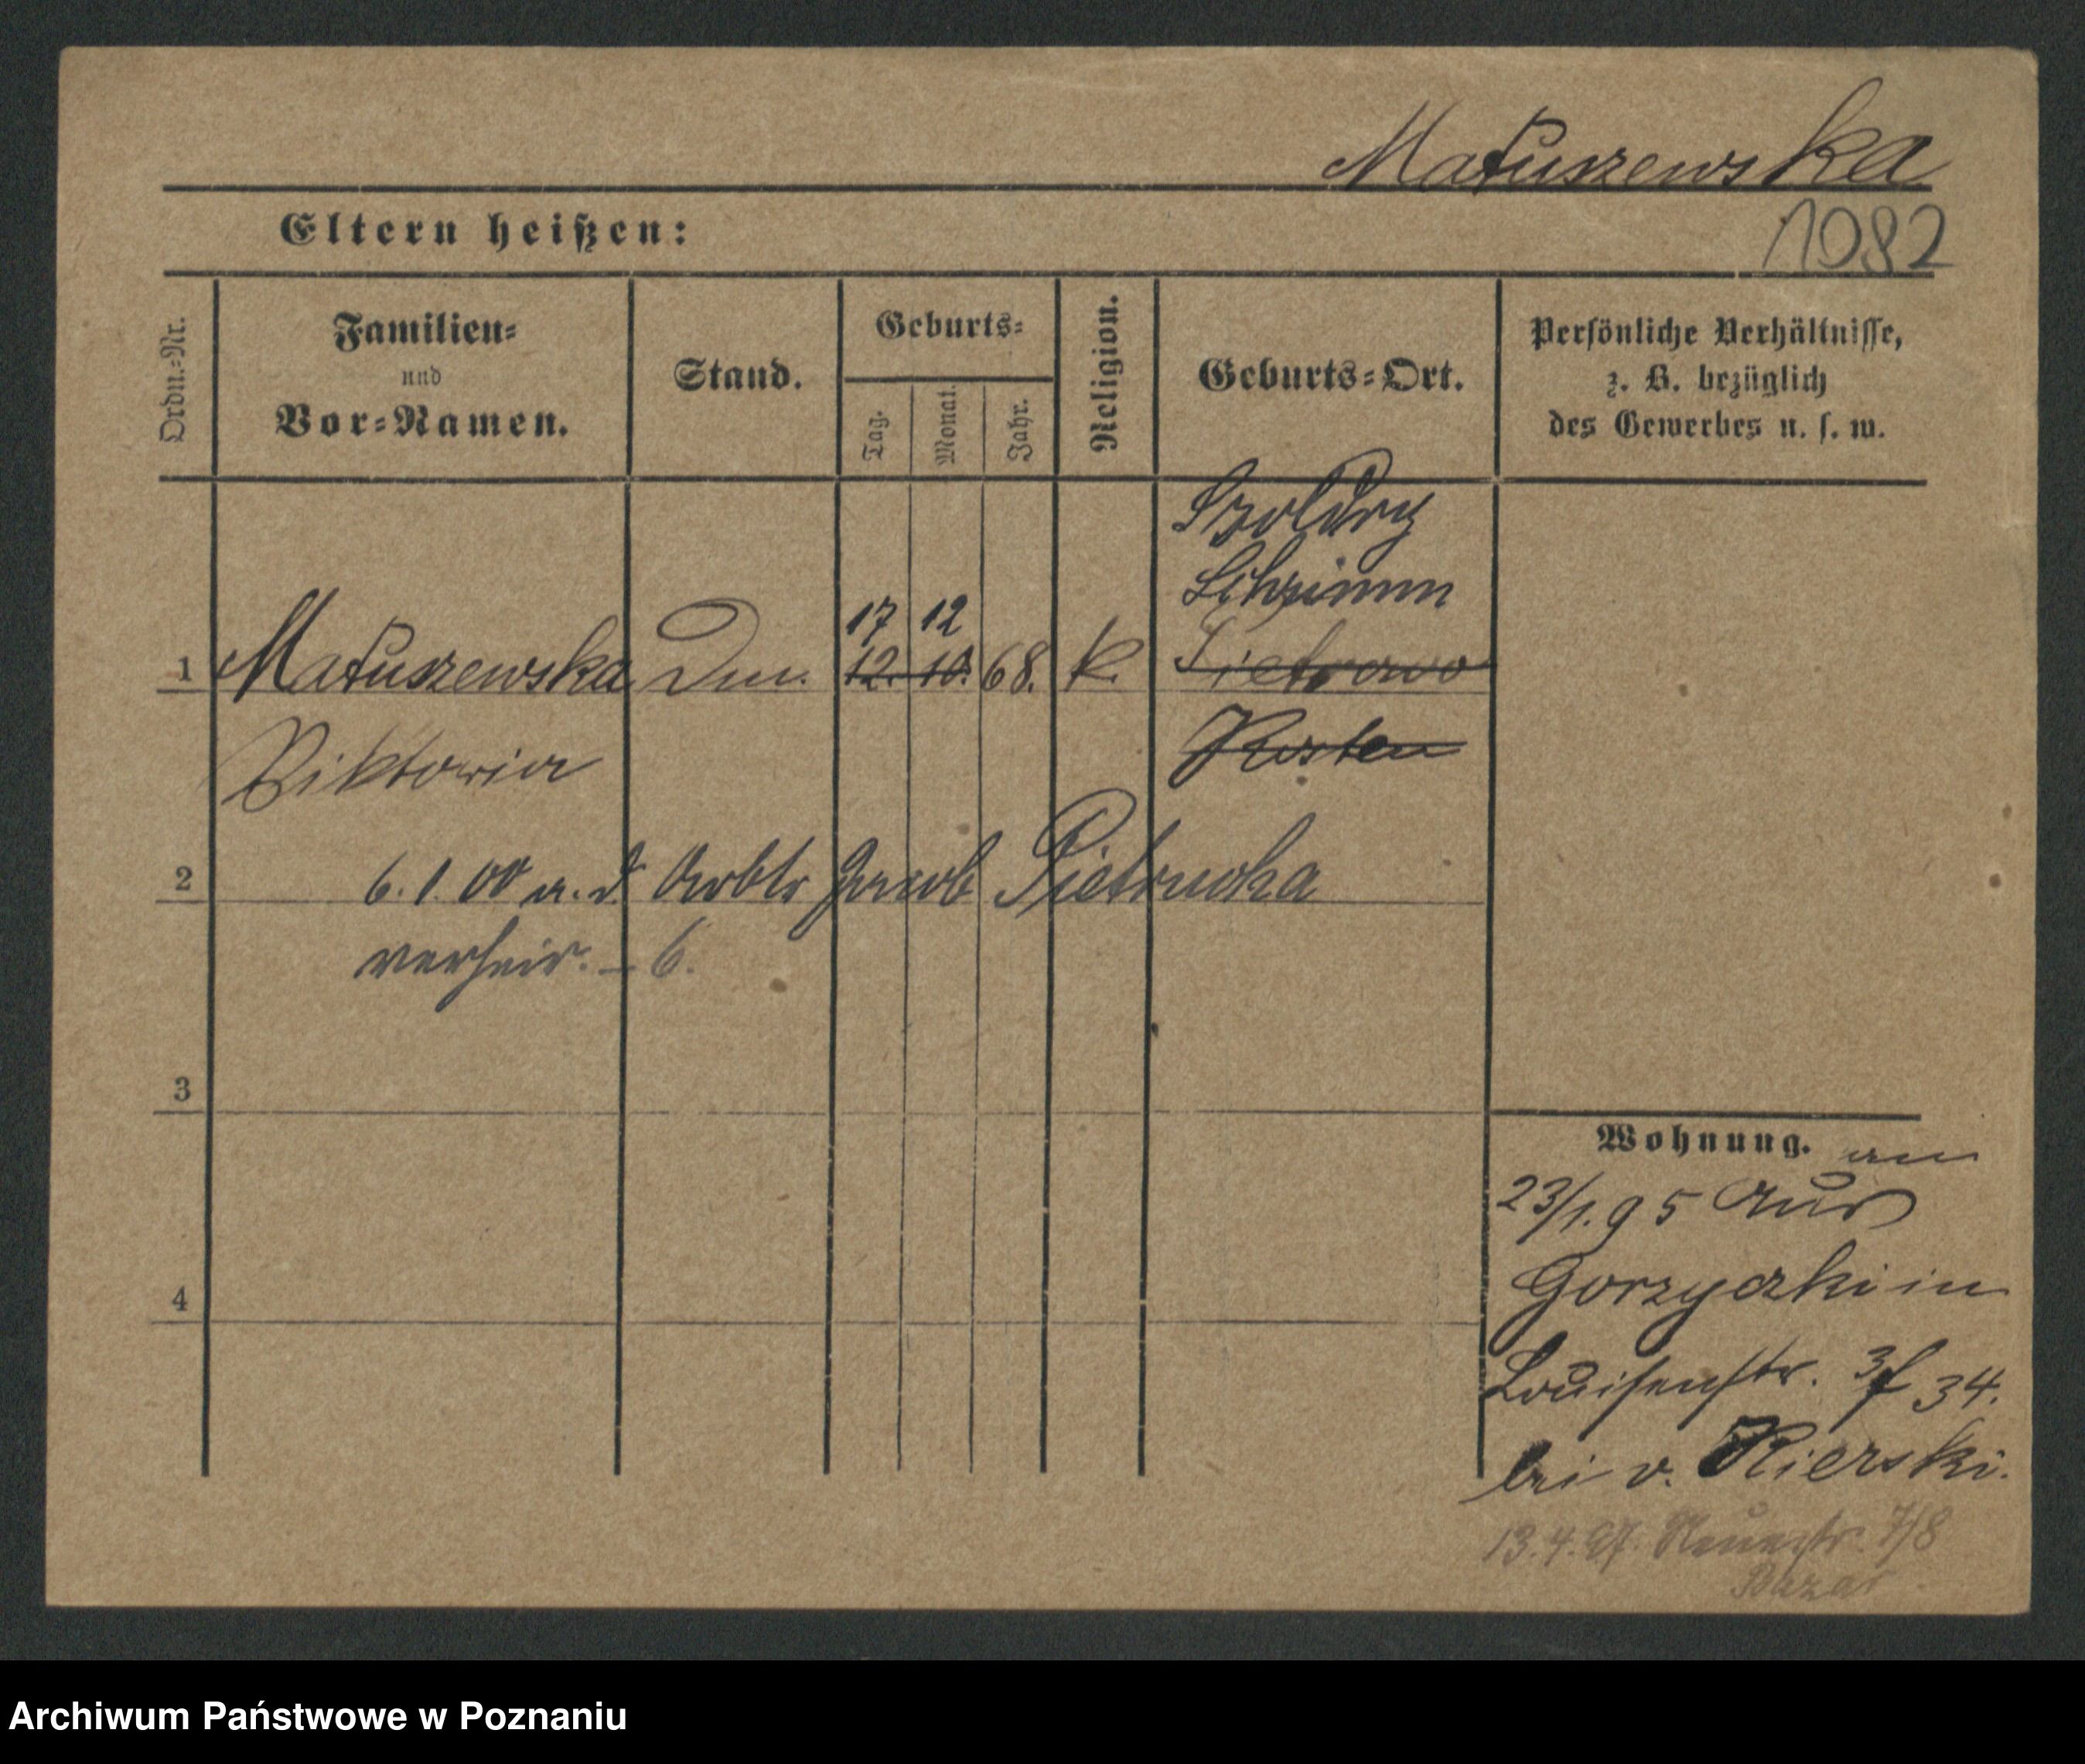 Matuszewska
1082
Eltern heißen:
Ordn.=Nr.
Familien=
und
Vor=Namen.
Stand.
Geburts=
Tag.
Monat.
Jahr.
Religion.
Geburts=Ort.
Persönliche Verhältnisse,
z. B. bezüglich
des Gewerbes u. s. w.
Szoldry
Schrimm
17 12
1 Matuszewska 12. 10. 68. k. Pietrowo
Viktoria Kosten
2 6. 1. 00 a. d. Arbtr Jacob Pietrucha
verheir. – 6.
3
4
Wohnung. an
23/1. 95 aus
Gorzyczki in
Louisenstr. 34.
bei v. Kierski.
13. 4. 97. Neuestr. 7/8
Bazar